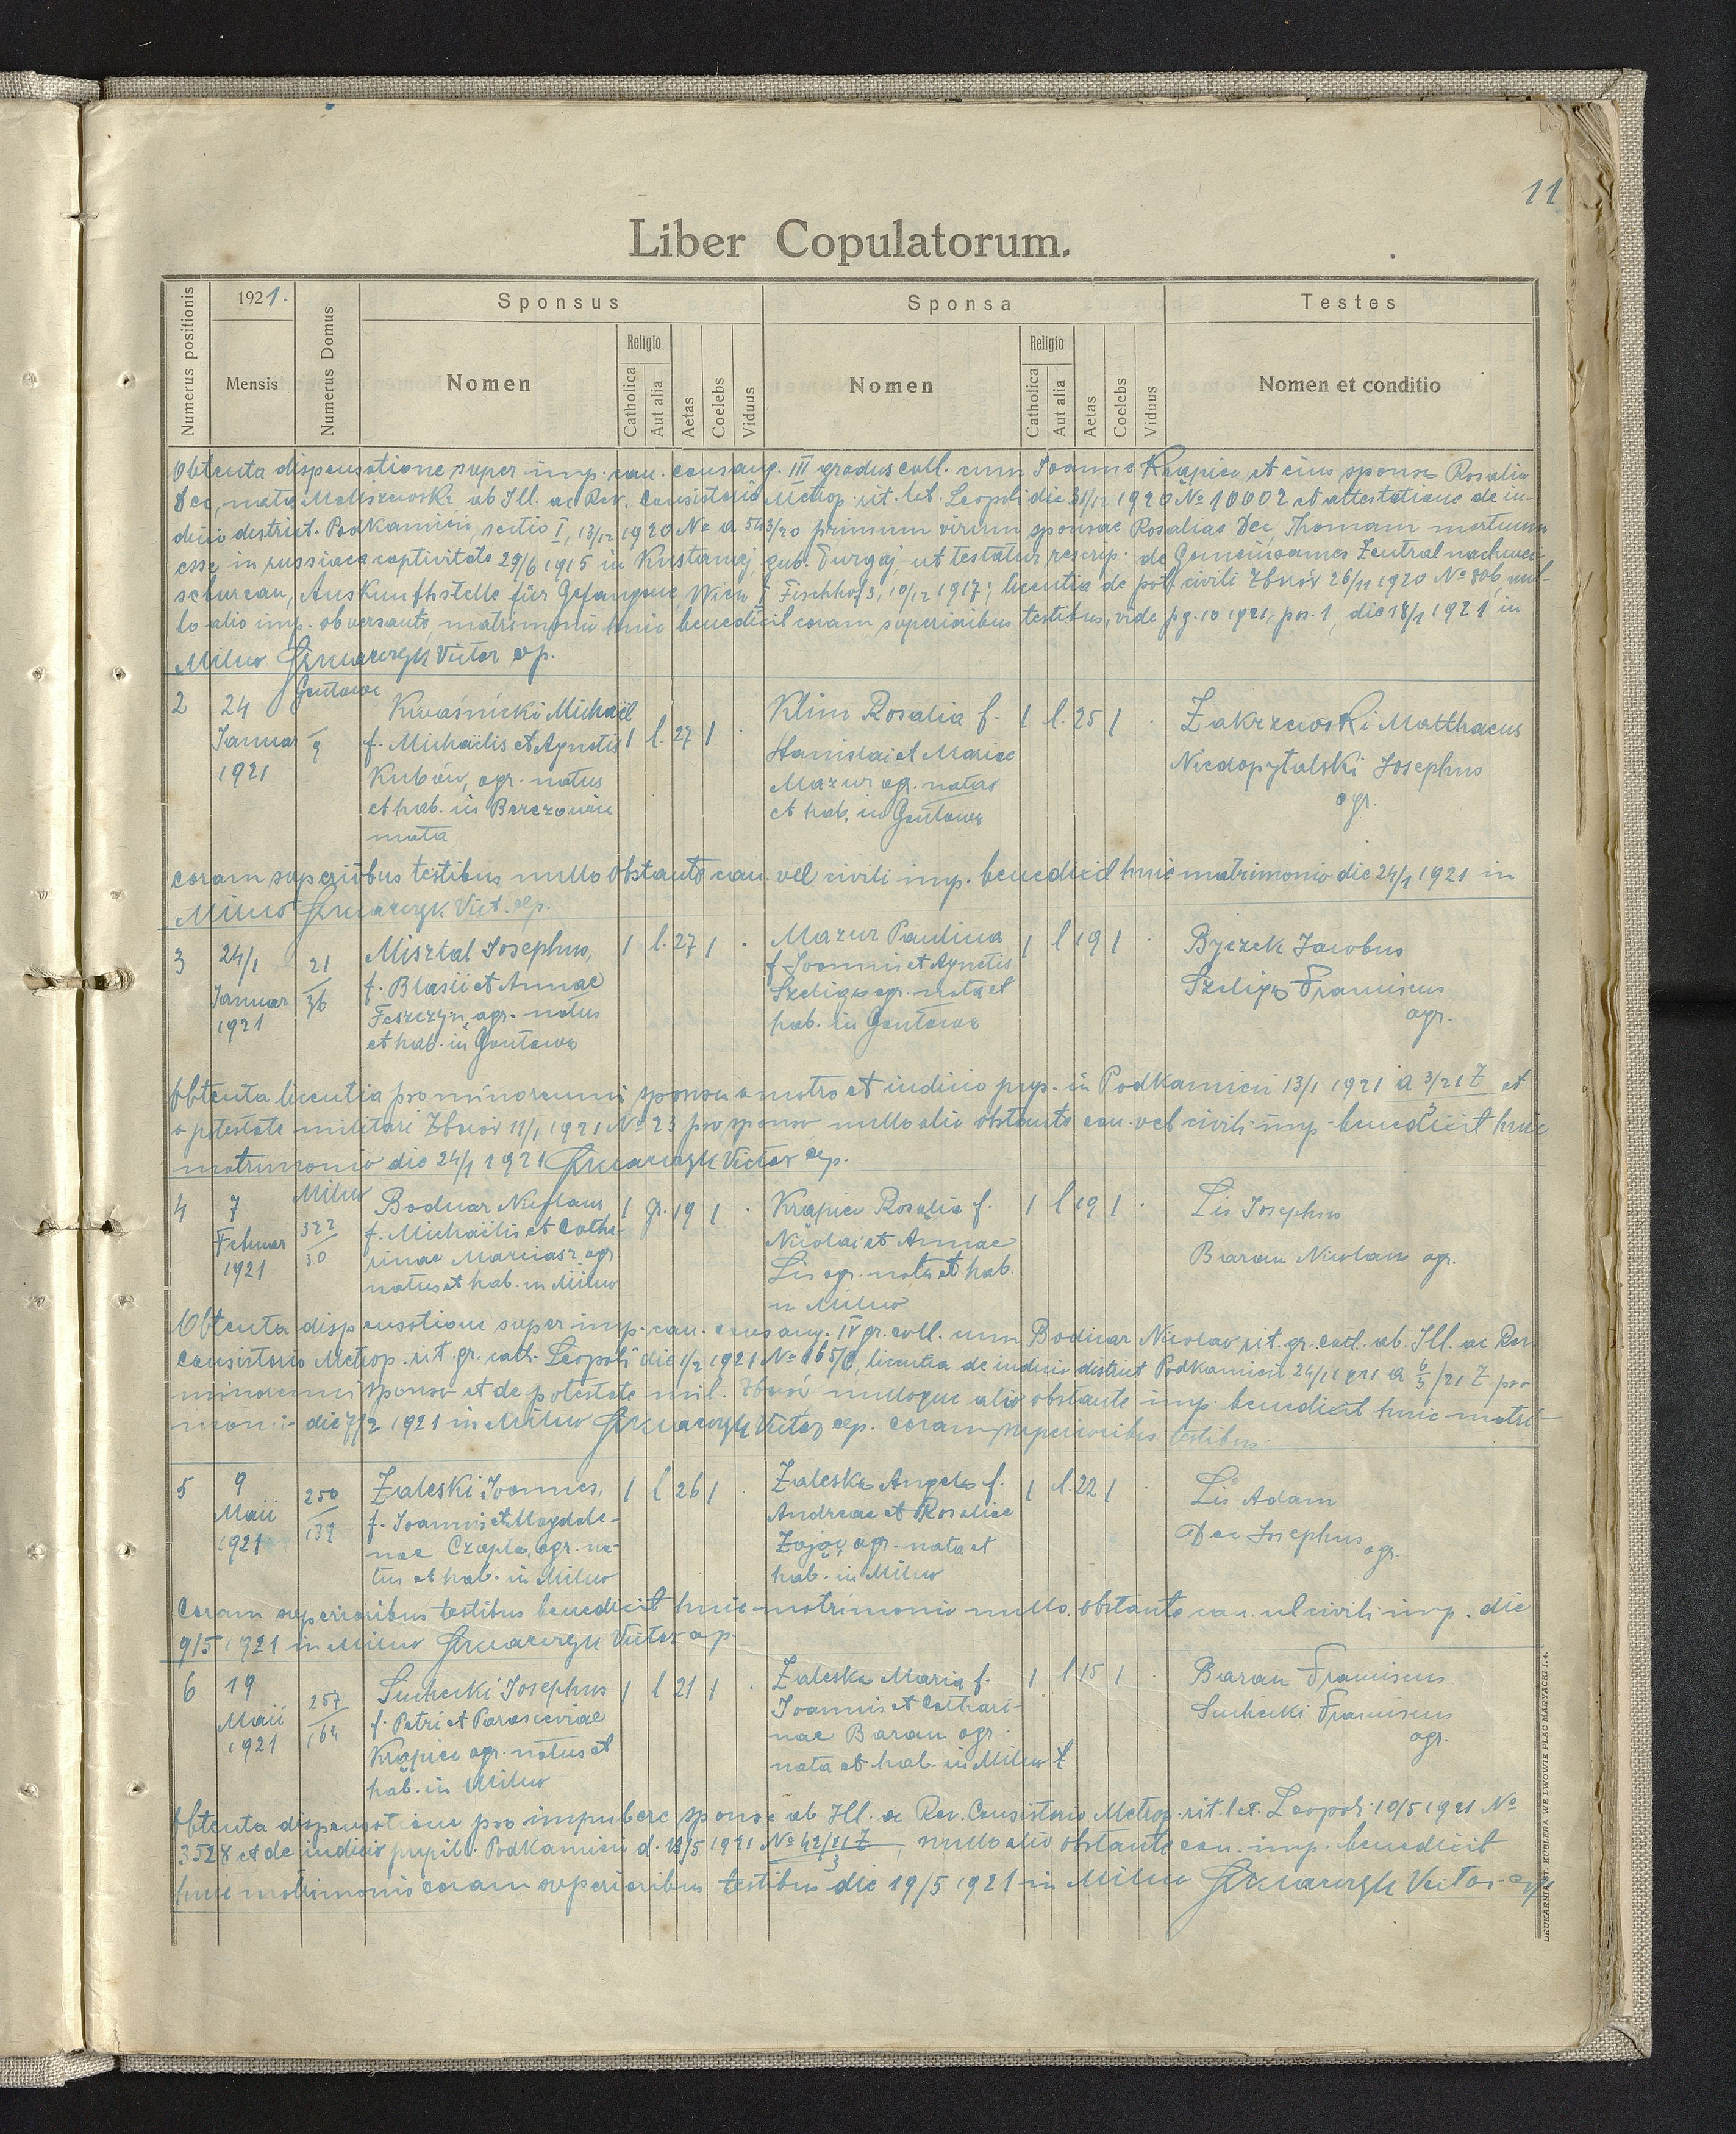 11
Liber Copulatorum.
Numerus positionis
1921.
Mensis
Numerus Domus
Sponsus
Nomen
Religio
Catholica
Aut alia
Aetas
Coelebs
Viduus
Sponsa
Nomen
Religio
Catholica
Aut alia
Aetas
Coelebs
Viduus
Testes
Nomen et conditio
Obtenta dispensatione super imp. can. consang. III gradus coll. cum Joanne Krąpiec et eius sponsa Rosalia
Dec, nata Maliszewski, ab Ill. ac Rev. Consistorio Metrop. rit. lat. Leopoli die 31/12 1920 № 10002 et attestatione de iu-
dicii district. Podkamień, sectio I, 13/12 1920 № a 543/20 primum virum sponsae Rosaliae Dec, Thomam mortuum
esse in russiaca captivitate 29/6 1915 in Kustanaj, gub. Turgaj, ut testatur rescrip. de Gemeinsames Zentralnachwei-
sebureau, Auskunftstelle für Gefangene, Wien I Fischhof 3, 10/12 1917; licentia de pot. civili Zborów 26/11 1920 № 806, nul-
lo alio imp. obversante, matrimonio huic benedicit coram superioribus testibus, vide pg. 10 1921, pos. 1, die 18/1 1921 in
Milno Victor
2 24 Januar 1921
Gontowa
9
Kwaśnicki Michaël
f. Michaëlis et Agnetis
Kubów, agr. natus
et hab. in Berezowica
mała
1 l. 27 1 .
Klim Rosalia f.
Stanislai et Mariae
Mazur agr. natas
et hab. in Gontowa
1 l. 25 1 .
Zakrzewski Matthaeus
Niedopytalski Josephus
agr.
coram superiobus testibus nullo obstante can. vel civili imp. benedicit huic matrimonio die 24/1 1921 in
Milno Vict.
3 24/1 Januar 1921
21
36
Misztal Josephus,
f. Blasii et Annae
Feszczyn, agr. natus
et hab. in Gontowa
1 l. 27 1 .
Mazur Paulina
f. Joannis et Agnetis
Szeliga agr. nata et
hab. in Gontowa
1 l 19 1 .
Byczek Jacobus
Szeliga Franciscus
agr.
Obtenta licentia pro minorenni sponsa a matre et iudicio pup. in Podkamień 13/1 1921 a 3/21 Z et
a potestate militari Zborów 11/1 1921 № 23 pro sponso, nullo alio obstante can. vel civili imp. benedicit huic
matrimonio die 24/1 1921 Victor
4 7 Februar 1921
Milno
322
50
Bodnar Nicolaus
f. Michaëlis et Catha-
rinae Marciasz agr
natus et hab. in Milno
1 gr. 19 1 .
Krąpiec Rosalia f.
Nicolai et Annae
Lis agr. nata et hab.
in Milno
1 l 19 1 .
Lis Josephus
Baran Nicolaus agr.
Obtenta dispensatione super imp. can. consang. IV gr. coll. cum Bodnar Nicolao rit. gr. cath. ab. Ill. ac Rev.
Consistorio Metrop. rit. gr. cath. Leopoli die 1/2 1921 № 165/0, licentia de iudicio district Podkamień 24/1 1921 a 6/21 Z pro
minorenni sponso et de potestate mil. Zborów nulloque alio obstante imp. benedicit huic matri-
monio die 7/2 1921 in Milno Victor coram superioribus testibus.
5 9 Maii 1921
250
139
Zaleski Joannes,
f. Joannis et Magdale-
nae Czapla, agr. na-
tus et hab. in Milno
1 l 26 1 .
Zaleska Angela f.
Andreae et Rosaliae
Zając, agr. nata et
hab. in Milno
1 l. 22 1 .
Lis Adam
Dec Josephus
agr.
Coram superioribus testibus benedicit huic matrimonio nullo. obstante can. vel civili imp. die
9/5 1921 in Milno Victor
6 19 Maii 1921
257
164
Suchecki Josephus
f. Petri et Parasceviae
Krąpiec agr. natus et
hab. in Milno
1 l 21 1 .
Zaleska Maria f.
Joannis et Cathari-
nae Baran agr.
nata et hab. in Milno
1 l 15 1 .
Baran Franciscus
Suchecki Franciscus
agr.
Obtenta dispensatione pro impubere sponsa ab Ill. ac Rev. Consistorio Metrop. rit. lat. Leopoli 10/5 1921 №
3528 et de iudicio pupil. Podkamień d. 13/5 1921 № 42/21 Z nullo alio obstante can. imp. benedicit
huic matrimonio coram superioribus testibus die 19/5 1921 in Milno Victor
DRUKARNIA ST. KÖBLERA WE LWOWIE PLAC MARYACKI L 4.